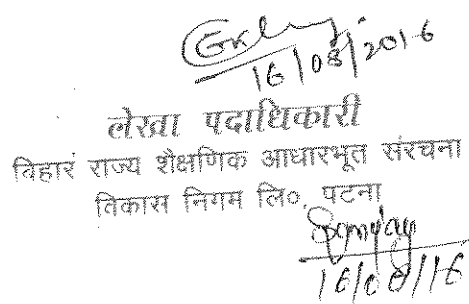 16/08/2016
लेखा पदाधिकारी
बिहार राज्य शैक्षणिक आधारभूत संरचना
विकास निगम लि०, पटना
16/08/16